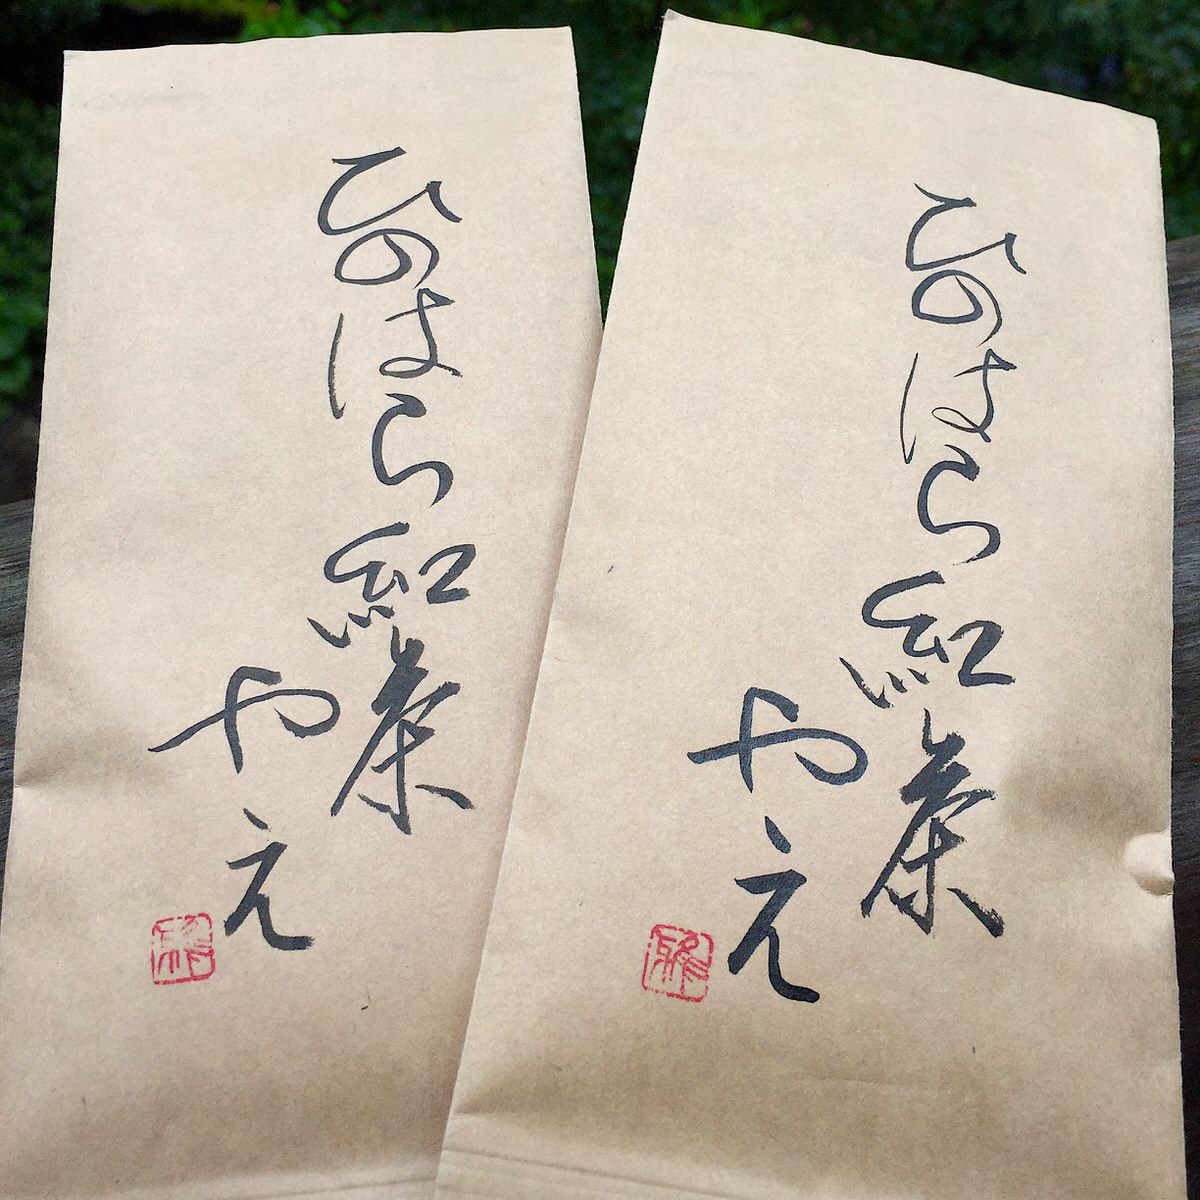 ひのはら紅茶
やえ
ひのはら紅茶
やえ